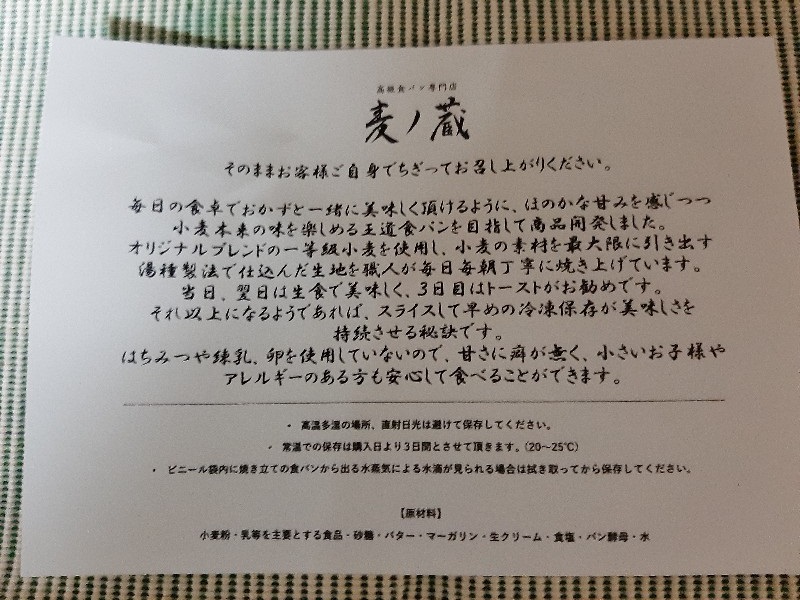 高級食パン専門店
麦ノ蔵
そのままお客様ご自身でちぎってお召し上がりください。
毎日の食卓でおかずと一緒に美味しく頂けるように、ほのかな甘みを感じつつ
小麦本来の味を楽しめる王道食パンを目指して商品開発しました。
オリジナルブレンドの一等級小麦を使用し、小麦の素材を最大限に引き出す
湯種製法で仕込んだ生地を職人が毎日毎朝丁寧に焼き上げています。
当日、翌日は生食で美味しく、3日目はトーストがお勧めです。
それ以上になるようであれば、スライスして早めの冷凍保存が美味しさを
持続させる秘訣です。
はちみつや練乳、卵を使用していないので、甘さに癖が無く、小さいお子様や
アレルギーのある方も安心して食べることができます。
・ 高温多湿の場所、直射日光は避けて保存してください。
・ 常温での保存は購入日より3日間とさせて頂きます。(20〜25℃)
・ ビニール袋内に焼き立ての食パンから出る水蒸気による水滴が見られる場合は拭き取ってから保存してください。
【原材料】
小麦粉・乳等を主要とする食品・砂糖・バター・マーガリン・生クリーム・食塩・パン酵母・水